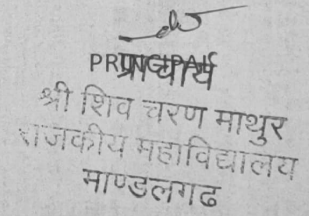 PRINCIPAL
प्राचार्य
श्री शिव चरण माथुर
राजकीय महाविद्यालय
माण्डलगढ